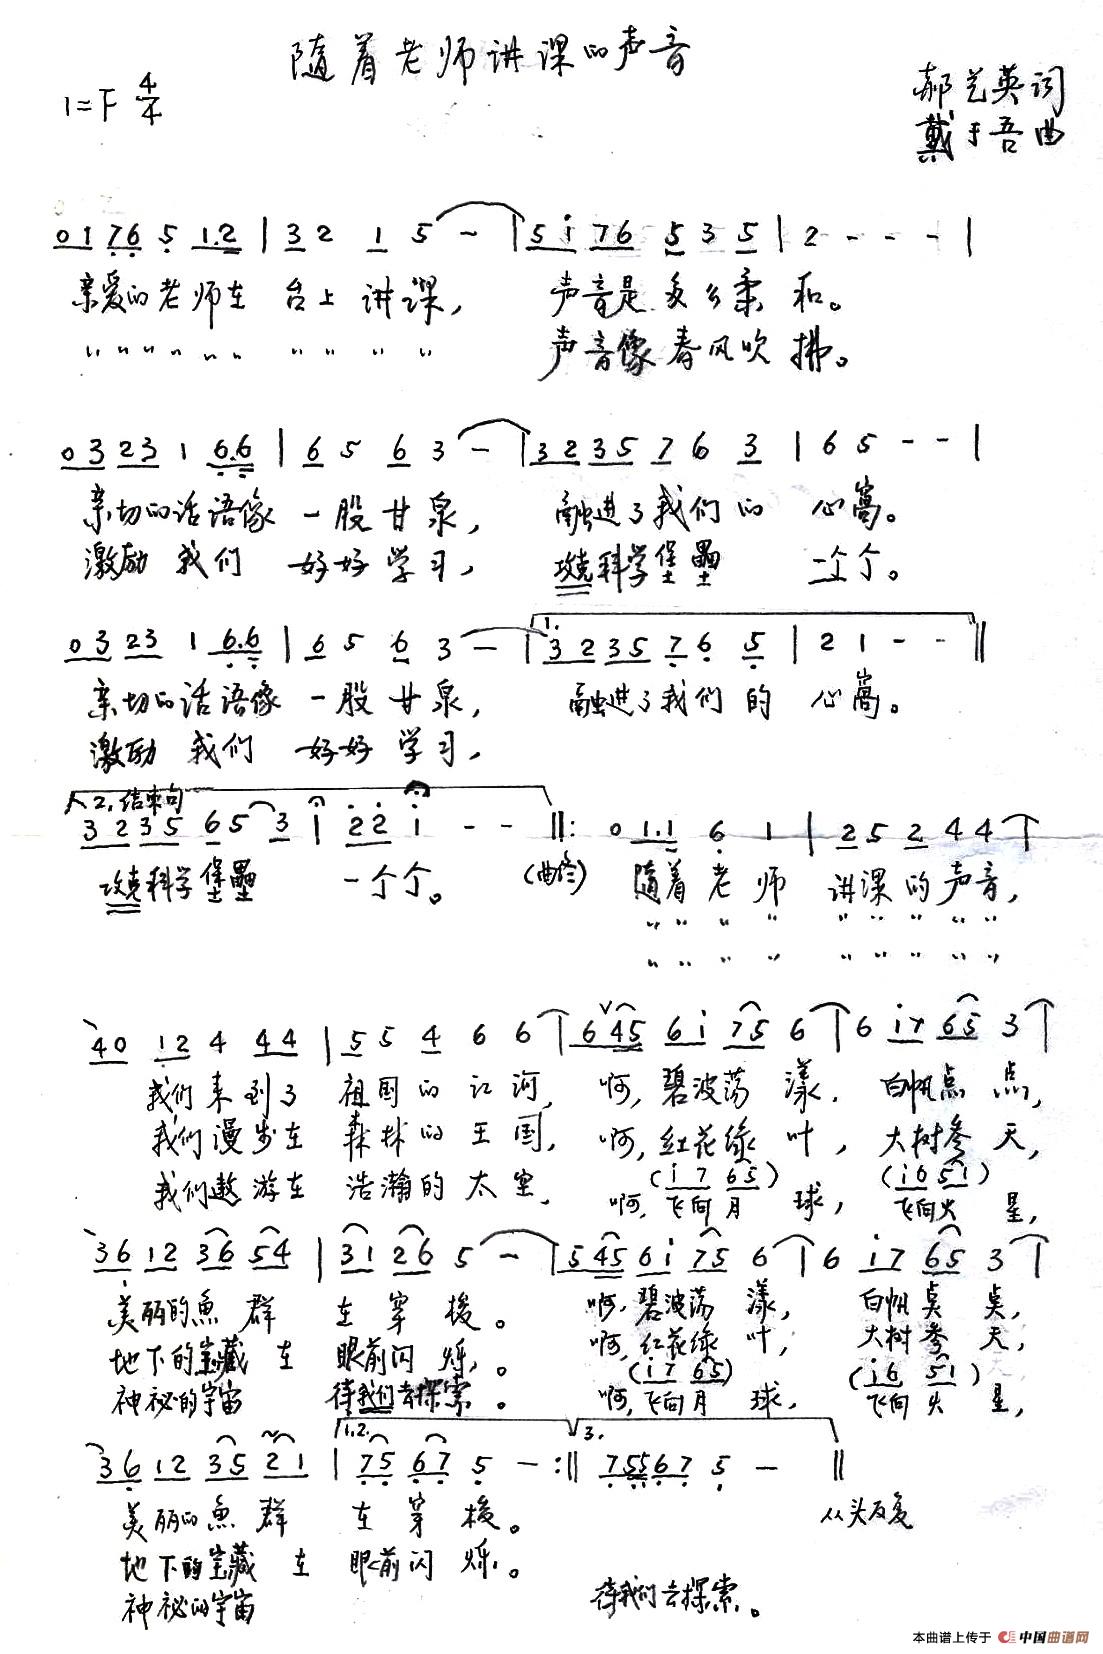 随着老师讲课的声音
1=F 4/4
郝艺英词
戴于吾曲
0 1 7 6 5 1. 2 | 3 2 1 5 - | 5 i 7 6 5 3 5 | 2 - - - |
亲爱的老师在 台上 讲课, 声音是 多么柔 和。
〃 〃 〃 〃 〃 〃 〃 〃 〃 〃 声音像 春风吹 拂。
0 3 2 3 1 6. 6 | 6 5 6 3 - | 3 2 3 5 7 6 3 | 6 5 - - |
亲切的话 语像 一股 甘泉, 融进了我们的 心窝。
激励 我们 好好 学习, 攻克科学堡垒 一个个。
0 3 2 3 1 6. 6 | 6 5 6 3 - | 1. 3 2 3 5 7 6 5 | 2 1 - - ‖
亲切的话 语像 一股 甘泉, 融进了我们的 心窝。
激励 我们 好好 学习,
2.结束句
3 2 3 5 6 5 3 i | 2 2 i - - ‖: 0 1. 1 6 1 | 2 5 2 4 4 |
攻克科学堡垒 一个个。 (曲终) 随着老师 讲课的声音,
〃 〃 〃 〃 〃 〃 〃 〃 〃
〃 〃 〃 〃 〃 〃 〃 〃 〃
4 0 1 2 4 4 4 | 5 5 4 6 6 | 6 4 5 6 i 7 5 6 | 6 i 7 6 5 3 |
我们来到了 祖国的江河, 啊,碧波荡 漾, 白帆点 点,
我们漫步在 森林的王国, 啊,红花绿 叶, 大树参 天,
(i 7 6 5) (i 6 5 1)
我们遨游在 浩瀚的太空, 啊,飞向月 球, 飞向火 星,
3 6 1 2 3 6 5 4 | 3 1 2 6 5 - | 5 4 5 6 i 7 5 6 | 6 i 7 6 5 3 |
美丽的鱼 群 在 穿 梭。 啊,碧波荡 漾, 白帆点 点,
地下的宝藏 在 眼前闪 烁。 啊,红花绿 叶, 大树参 天,
(i 7 6 5) (i 6 5 1)
神秘的宇宙 待我们去探索。 啊,飞向月 球, 飞向火 星,
3 6 1 2 3 5 2 1 | 1.2. 7 5 6 7 5 - :‖ 3. 7 5 5 6 7 5 - ‖
美丽的鱼 群 在 穿 梭。 从头反复
地下的宝藏 在 眼前闪 烁。
神秘的宇宙 待我们去探索。
本曲谱上传于 中国曲谱网